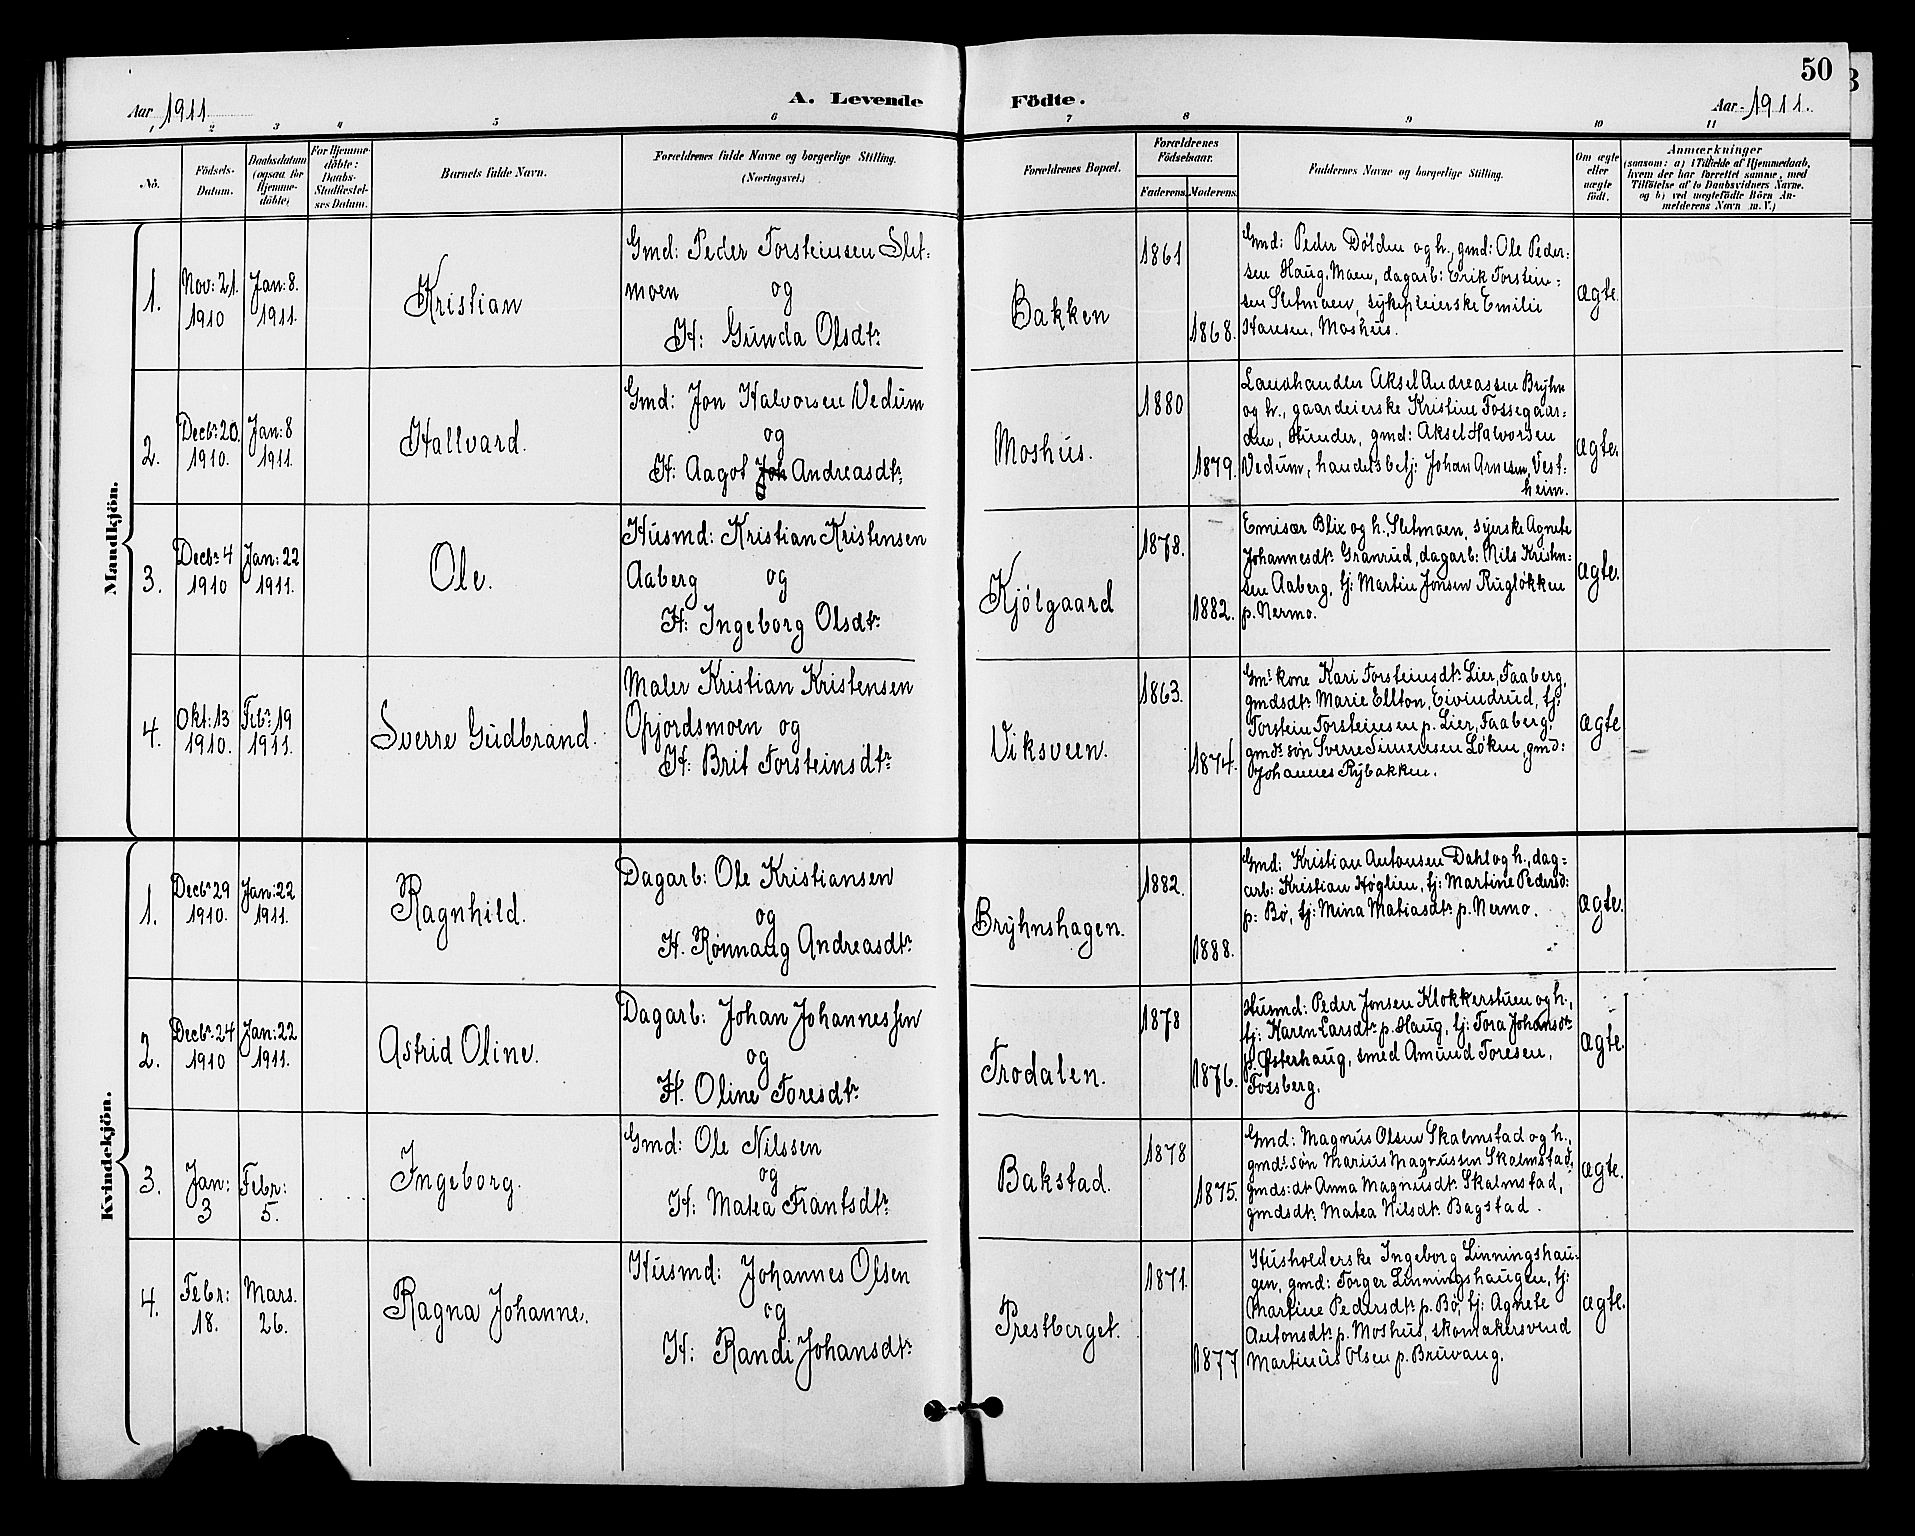 50
Aar 1911
A. Levende Födte.
Aar 1911.
2 3 4 5 6 7 8 9 10 11
Nö.
Födsels-Datum.
Daabsdatum (ogsaa for Hjemme-döbte)
For Hjemme-döbte: Daabs-Stadfæstel-ses Datum.
Barnets fulde Navn.
Forældrenes fulde Navne og borgerlige Stilling.
(Næringsvei.)
Forældrenes Bopæl.
Forældrenes Födselsaar.
Faderens. Moderens.
Faddernes Navne og borgerlige Stilling.
Om ægte eller uægte födt.
Anmærkninger
(saasom: a) i Tilfælde af Hjemmedaab,
hvem der har forrettet samme, med
Tilföielse af to Daabsvidners Navne.
og b) ved uægtefödte Börn An-
melderens Navn m. V.)
Mandkjön.
1.
Nov: 21.
1910
Jan: 8.
1911.
Kristian
Gmd: Peder Torsteinsen Slet-
moen og
H: Gunda Olsdtr
Bakken
1861
1868.
Gmd: Peder Dølden og h., gmd: Ole Peder-
sen Haug, Moen, dagarb: Erik Torstein-
sen Sletmoen, sykepleierske Emilie
Hansen, Moshus.
ægte.
2.
Decbr 20.
1910.
Jan: 8
1911.
Hallvard.
Gmd: Jon Halvorsen Vedum
og
H: Aagot Andreasdtr
Moshus.
1880
1879.
Landhandler Aksel Andreassen Bryhn
og h., gaardeierske Kristine Fossegaar-
den, Hunder, gmd: Aksel Halvorsen
Vedum, handelsbetj: Johan Arnesen, Vest-
heim.
ægte.
3.
Decbr 4
1910
Jan: 22
1911.
Ole.
Husmd: Kristian Kristensen
Aaberg og
H: Ingeborg Olsdtr
Kjølgaard
1878.
1882.
Emisær Blix og h., Sletmoen, syerske Agnete
Johannesdtr Granrud, dagarb: Nils Kristin-
sen Aaberg, tj: Martin Jonsen Rugløkken
p. Nermo.
ægte.
4.
Okt: 13
1910.
Febr 19
1911.
Sverre Gudbrand.
Maler Kristian Kristensen
Opjordsmoen og
H: Brit Torsteinsdtr
Viksveen.
1863.
1874.
Gms kone Kari Torsteinsdtr Lier, Faaberg,
gmdsdtr Marie Ellton, Eivindrud, tj:
Torstein Torsteinsen p. Lier, Faaberg,
gmds søn Sverre Simensen Løken, gmd:
Johannes Rybakken.
ægte
Kvindekjön.
1.
Decbr 29
1910.
Jan: 22
1911.
Ragnhild.
Dagarb: Ole Kristiansen
og
H. Rønnaug Andreasdtr
Bryhnshagen.
1882.
1888.
Gmd: Kristian Antonsen Dahl og h., dag-
arb: Kristian Høglien, tj: Martine Pedersd:
p: Bø, tj: Mina Matiasdtr p. Nermo.
ægte.
2.
Decbr 24
1910
Jan: 22
1911.
Astrid Oline.
Dagarb: Johan Johannessen
og
H. Oline Toresdtr
Trodalen.
1878
1876.
Husmd: Peder Jonsen Klokkerstuen og h.,
tj: Karen Larsdtr p. Haug, tj: Tora Johansdtr
p. Østerhaug, smed Amund Toresen,
Forsberg.
ægte.
3.
Jan:
3
Febr:
5.
Ingeborg.
Gmd: Ole Nilssen
og
H: Matea Frantsdtr
Bakstad.
1878
1875.
Gmd: Magnus Olsen Skalmstad og h.,
gmds søn Marius Magnussen Skalmstad,
gmds:dt Anna Magnusdtr Skalmstad,
gmdsdtr Matea Nilsdtr Bagstad.
ægte.
4.
Febr:
18.
Mars.
26.
Ragna Johanne.
Husmd: Johannes Olsen
og
H: Randi Johansdtr
Prestberget.
1871.
1877
Husholderske Ingeborg Linningshau-
gen, gmd: Torger Linningshaugen, tj:
Martine Pedersdtr p. Bø, tj: Agnete
Antonsdtr p. Moshus, skomakersvend
Martinus Olsen p. Bruvang.
ægte.